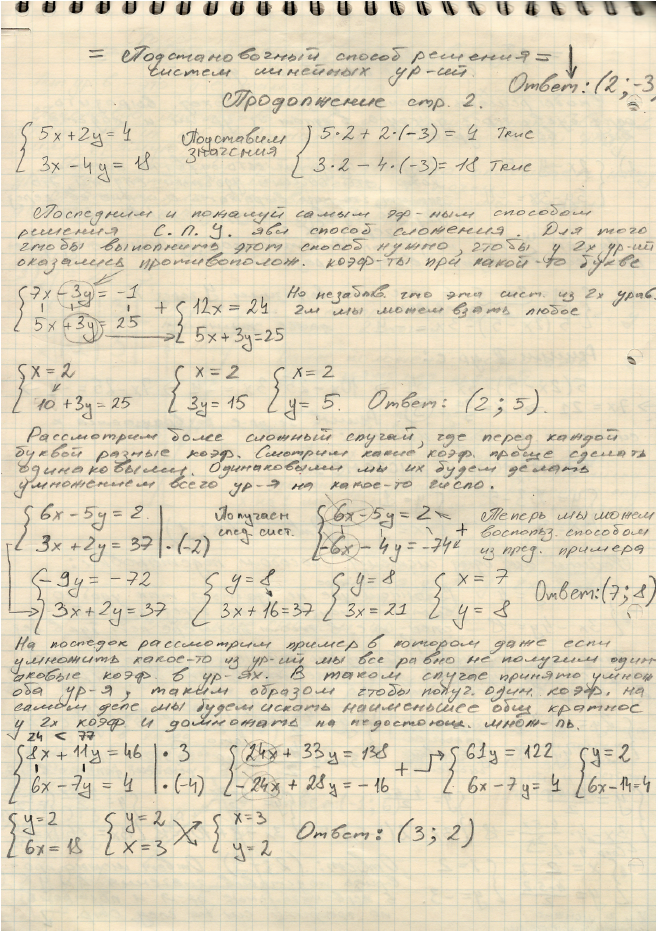 = Подстановочный способ решения =
систем линейных ур-ий.
Ответ: (2; -3
Продолжение стр. 2.
{ 5x + 2y = 4   Подставим   { 5·2 + 2·(-3) = 4 True
{ 3x - 4y = 18   значения   { 3·2 - 4·(-3) = 18 True
Последним и пожалуй самым эф-ным способом
решения С. Л. У. явл способ сложения. Для того
чтобы выполнить этот способ нужно, чтобы у 2х ур-ий
оказались противополож. коэф-ты при какой-то букве
{ 7x - 3y = -1   +   { 12x = 24   Но незабыв. что эта сист. из 2х урав.
{ 5x + 3y = 25   { 5x + 3y = 25   2м мы можем взять любое
{ x = 2   { x = 2   { x = 2
{ 10 + 3y = 25   { 3y = 15   { y = 5.   Ответ: (2; 5).
Рассмотрим более сложный случай, где перед каждой
буквой разные коэф. Смотрим какие коэф. проще сделать
одинаковыми. Одинаковыми мы их будем делать
умножением всего ур-я на какое-то число.
{ 6x - 5y = 2 |   Получаем   { 6x - 5y = 2   +   Теперь мы можем
{ 3x + 2y = 37 | ·(-2)   след. сист.   { -6x - 4y = -74   воспольз. способом
из пред. примера
{ -9y = -72   { y = 8   { y = 8   { x = 7   Ответ: (7; 8)
{ 3x + 2y = 37   { 3x + 16 = 37   { 3x = 21   { y = 8
На последок рассмотрим пример в котором даже если
умножить какое-то из ур-ий мы все равно не получим один
аковые коэф. в ур-ях. В таком случае принято умнож
оба ур-я, таким образом чтобы получ. один. коэф. на
самом деле мы будем искать наименьшее общ кратное
у 2х коэф и домножать на недостающ. множ-ль.
24 < 77
{ 8x + 11y = 46 | · 3   { 24x + 33y = 138   +   { 61y = 122   { y = 2
{ 6x - 7y = 4 | ·(-4)   { -24x + 28y = -16   { 6x - 7y = 4   { 6x - 14 = 4
{ y = 2   { y = 2   { x = 3   Ответ: (3; 2)
{ 6x = 18   { x = 3   { y = 2